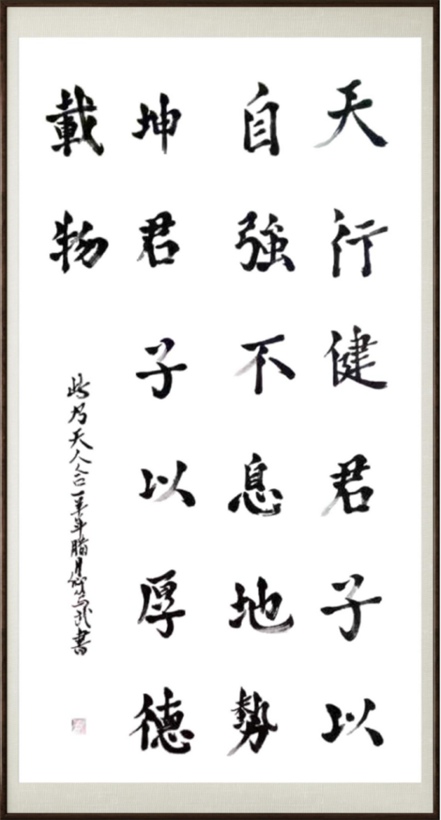 天行健君子以
自強不息地勢
坤君子以厚德
載物
此乃天人合一辛年臘月書